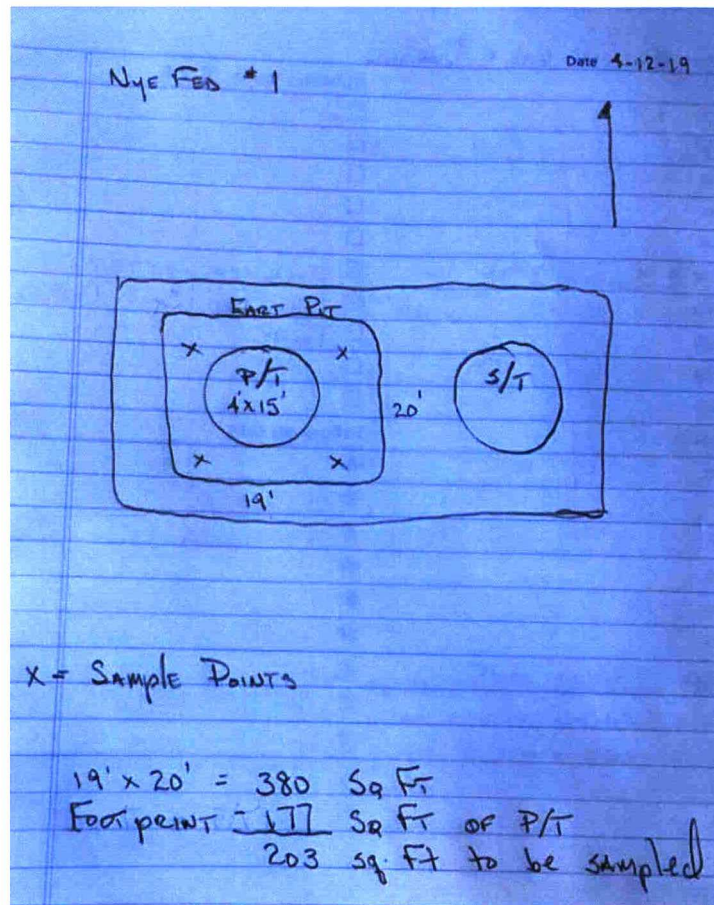 Date 4-12-19
Nye Fed #1
Eart Pit
P/T
4'x15'
S/T
20'
19'
x = Sample Points
19' x 20' = 380 Sq Ft
Footprint - 177 Sq Ft of P/T
203 sq. Ft to be sampled